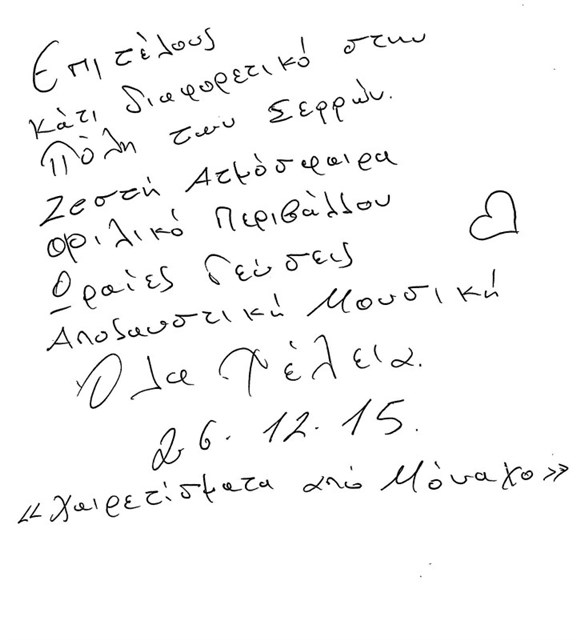 Επιτέλους
κάτι διαφορετικό στην
Πόλη των Σερρών.
Ζεστή Ατμόσφαιρα
Φιλικό Περιβάλλον
Ωραίες Γεύσεις
Απολαυστική Μουσική
Όλα Τέλεια.
26.12.15.
«Χαιρετίσματα από Μόναχο»